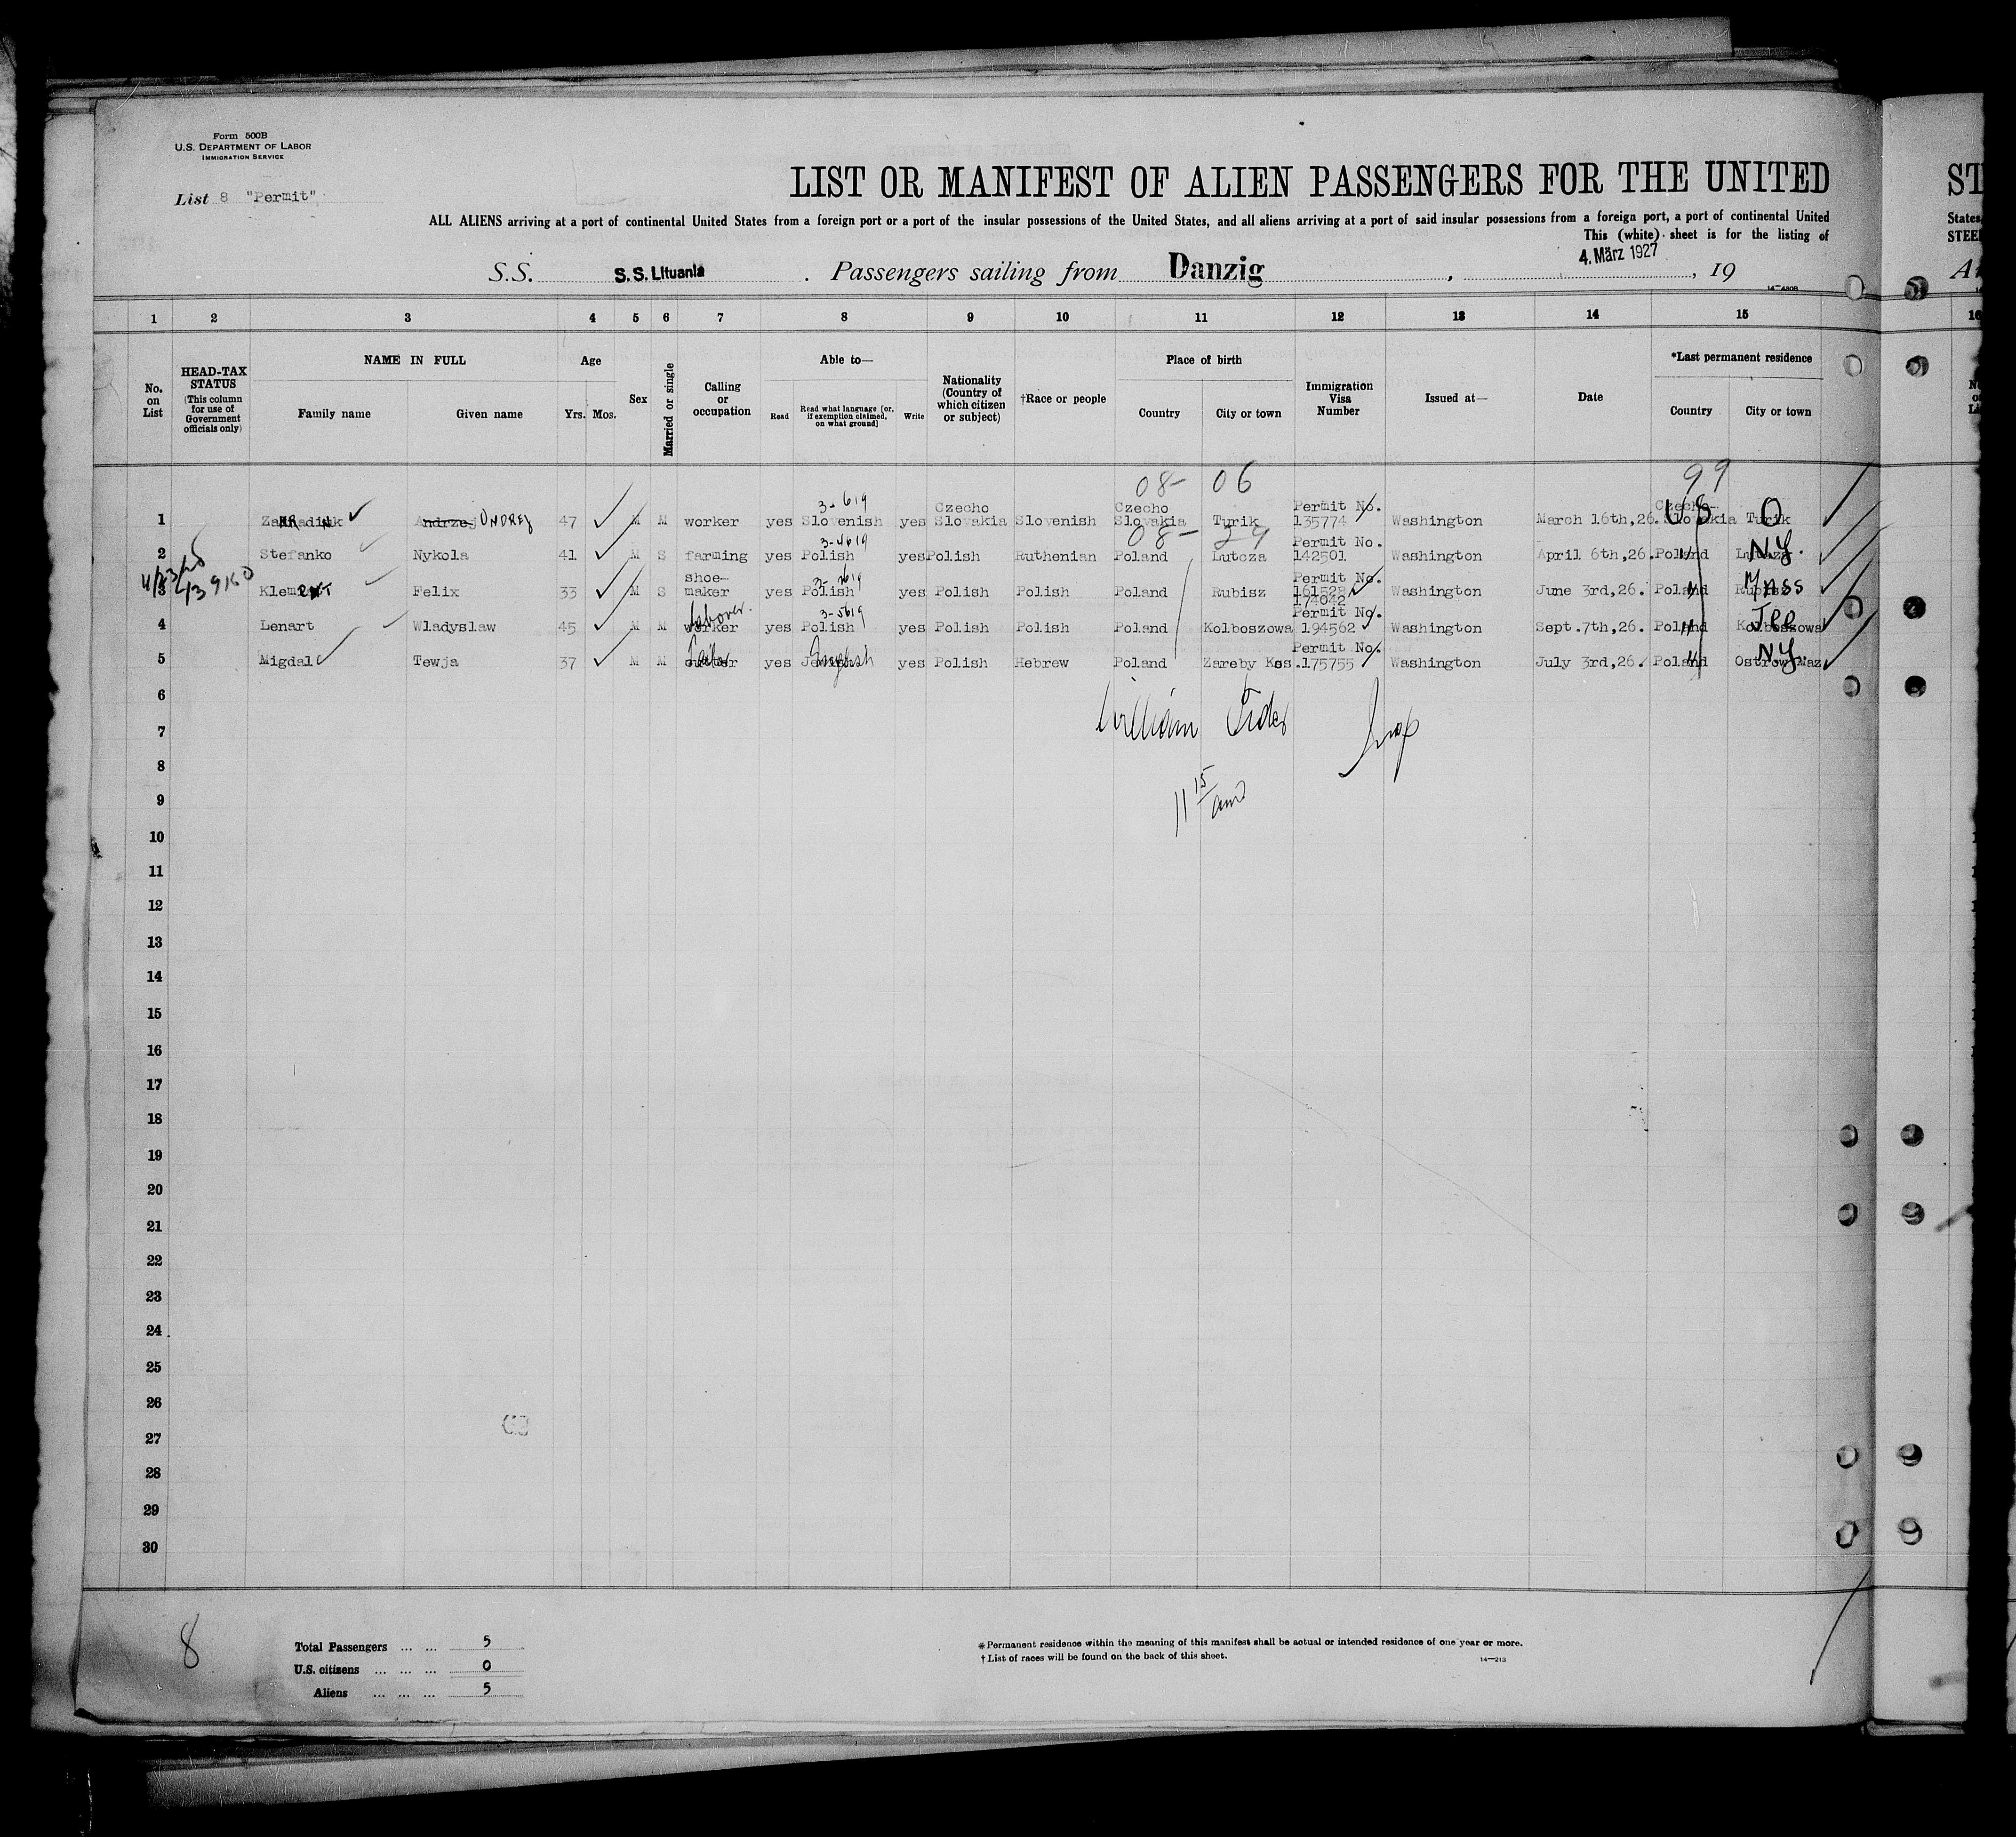 Form 500B
U.S. DEPARTMENT OF LABOR
IMMIGRATION SERVICE
List 8 "Permit"
LIST OR MANIFEST OF ALIEN PASSENGERS FOR THE UNITED
ST
ALL ALIENS arriving at a port of continental United States from a foreign port or a port of the insular possessions of the United States, and all aliens arriving at a port of said insular possessions from a foreign port, a port of continental United
States,
This (white) sheet is for the listing of
STEE
S.S. S.S. Lituania. Passengers sailing from Danzig, 4. März 1927, 19
14-480B
1 2 3 4 5 6 7 8 9 10 11 12 13 14 15 16
No. on List
HEAD-TAX STATUS (This column for use of Government officials only)
NAME IN FULL
Family name Given name
Age
Yrs. Mos.
Sex
Married or single
Calling or occupation
Able to—
Read
Read what language [or, if exemption claimed, on what ground]
Write
Nationality (Country of which citizen or subject)
†Race or people
Place of birth
Country City or town
Immigration Visa Number
Issued at—
Date
*Last permanent residence
Country City or town
08- 06 99
1 Andrzej ONDREJ 47 M M worker yes 3-619 Slovenish yes Czecho Slovakia Slovenish Czecho Slovakia Turik Permit No. 135774 Washington March 16th,26. Czecho- Slovakia US Turik O
08- 29
2 Stefanko Nykola 41 M S farming yes 3-4619 Polish yes Polish Ruthenian Poland Lutcza Permit No. 142501 Washington April 6th,26. Poland " N.Y.
3 Felix 33 M S shoe-maker yes Polish yes Polish Polish Poland Rubisz Permit No. 161528 174042 Washington June 3rd,26. Poland " Mass
4 Lenart Wladyslaw 45 M M worker labover. yes 3-5619 Polish yes Polish Polish Poland Kolboszowa Permit No. 194562 Washington Sept.7th,26. Poland " Kolboszowa
5 Migdal Tewja 37 M M yes English yes Polish Hebrew Poland Zareby Kos. Permit No. 175755 Washington July 3rd,26. Poland " Ostrow Maz N.Y.
6
William
7
8
11 15/am
9
10
11
12
13
14
15
16
17
18
19
20
21
22
23
24
25
26
27
28
29
30
8
Total Passengers ... ... 5
U.S. citizens ... ... ... 0
Aliens ... ... ... 5
*Permanent residence within the meaning of this manifest shall be actual or intended residence of one year or more.
†List of races will be found on the back of this sheet.
14-213